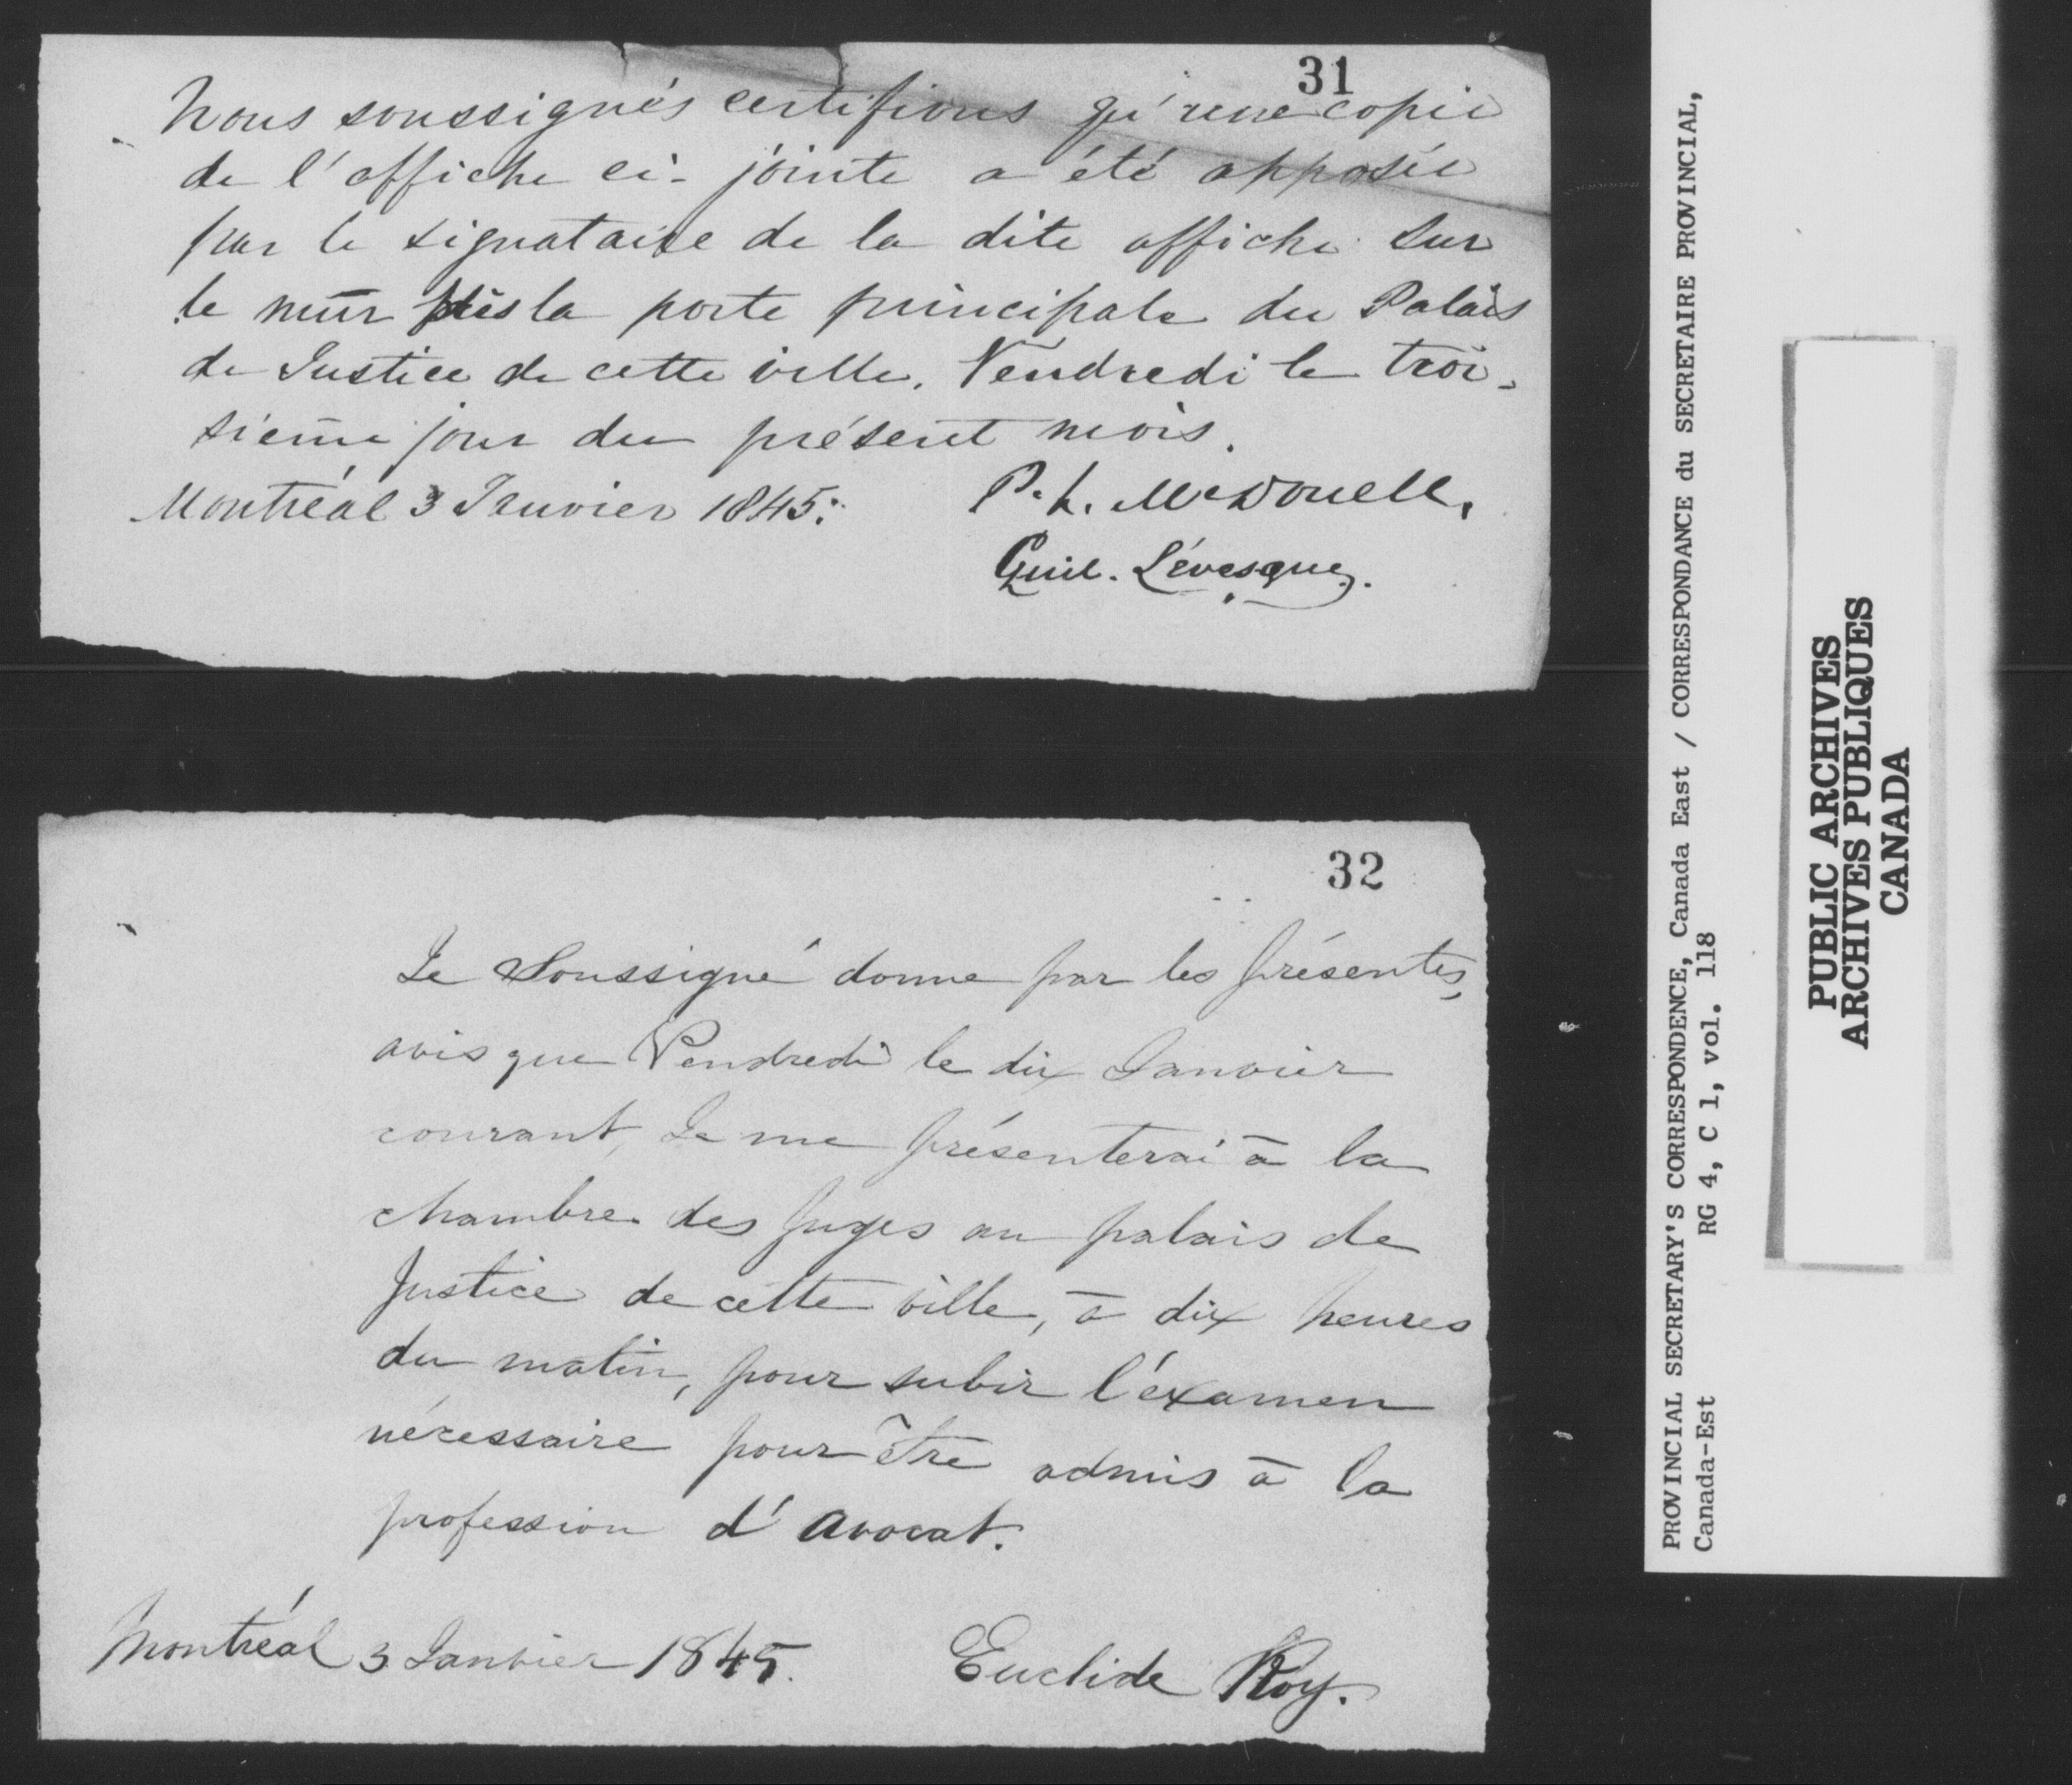 31
Nous soussignés certifions qu'une copie
de l'affiche ci-jointe a été apposée
par le signataire de la dite affiche sur
le mur près la porte principale du Palais
de Justice de cette ville. Vendredi le troi-
sième jour du présent mois.
Montréal 3 Janvier 1845.
P. L. McDonell,
Guil. Lévesque.
32
Le Soussigné donne par les présentes,
avis que Vendredi le dix Janvier
courant, Je me présenterai à la
chambre des Juges au palais de
Justice de cette ville, à dix heures
du matin, pour subir l'éxamen
nécessaire pour être admis à la
profession d'Avocat.
Montréal 3 Janvier 1845.
Euclide Roy.
PROVINCIAL SECRETARY'S CORRESPONDENCE, Canada East / CORRESPONDANCE du SECRETAIRE PROVINCIAL,
Canada-Est RG 4, C 1, vol. 118
PUBLIC ARCHIVES
ARCHIVES PUBLIQUES
CANADA